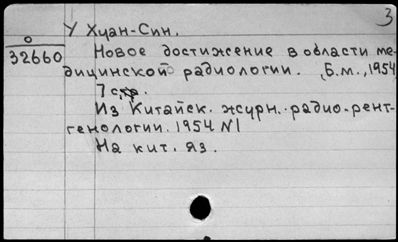 3
У Хуан-Син.
0
32660
Новое достижение в области ме-
дицинской радиологии. Б.м., 1954
7 стр.
Из Китайск. журн. радио-рент-
генологии. 1954 N1
На кит. яз.